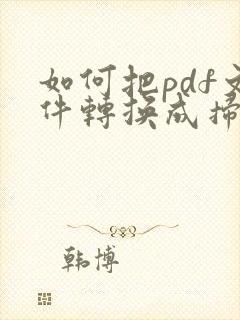 如何把pdf文
件轉換成掃
韩博